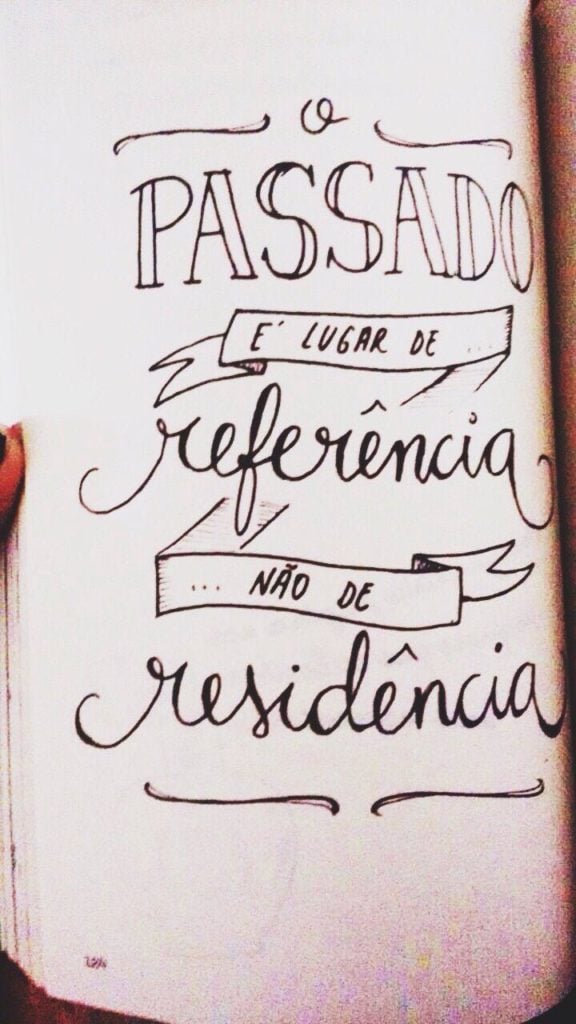 O
PASSADO
E' LUGAR DE ...
referência
... NÃO DE
residência